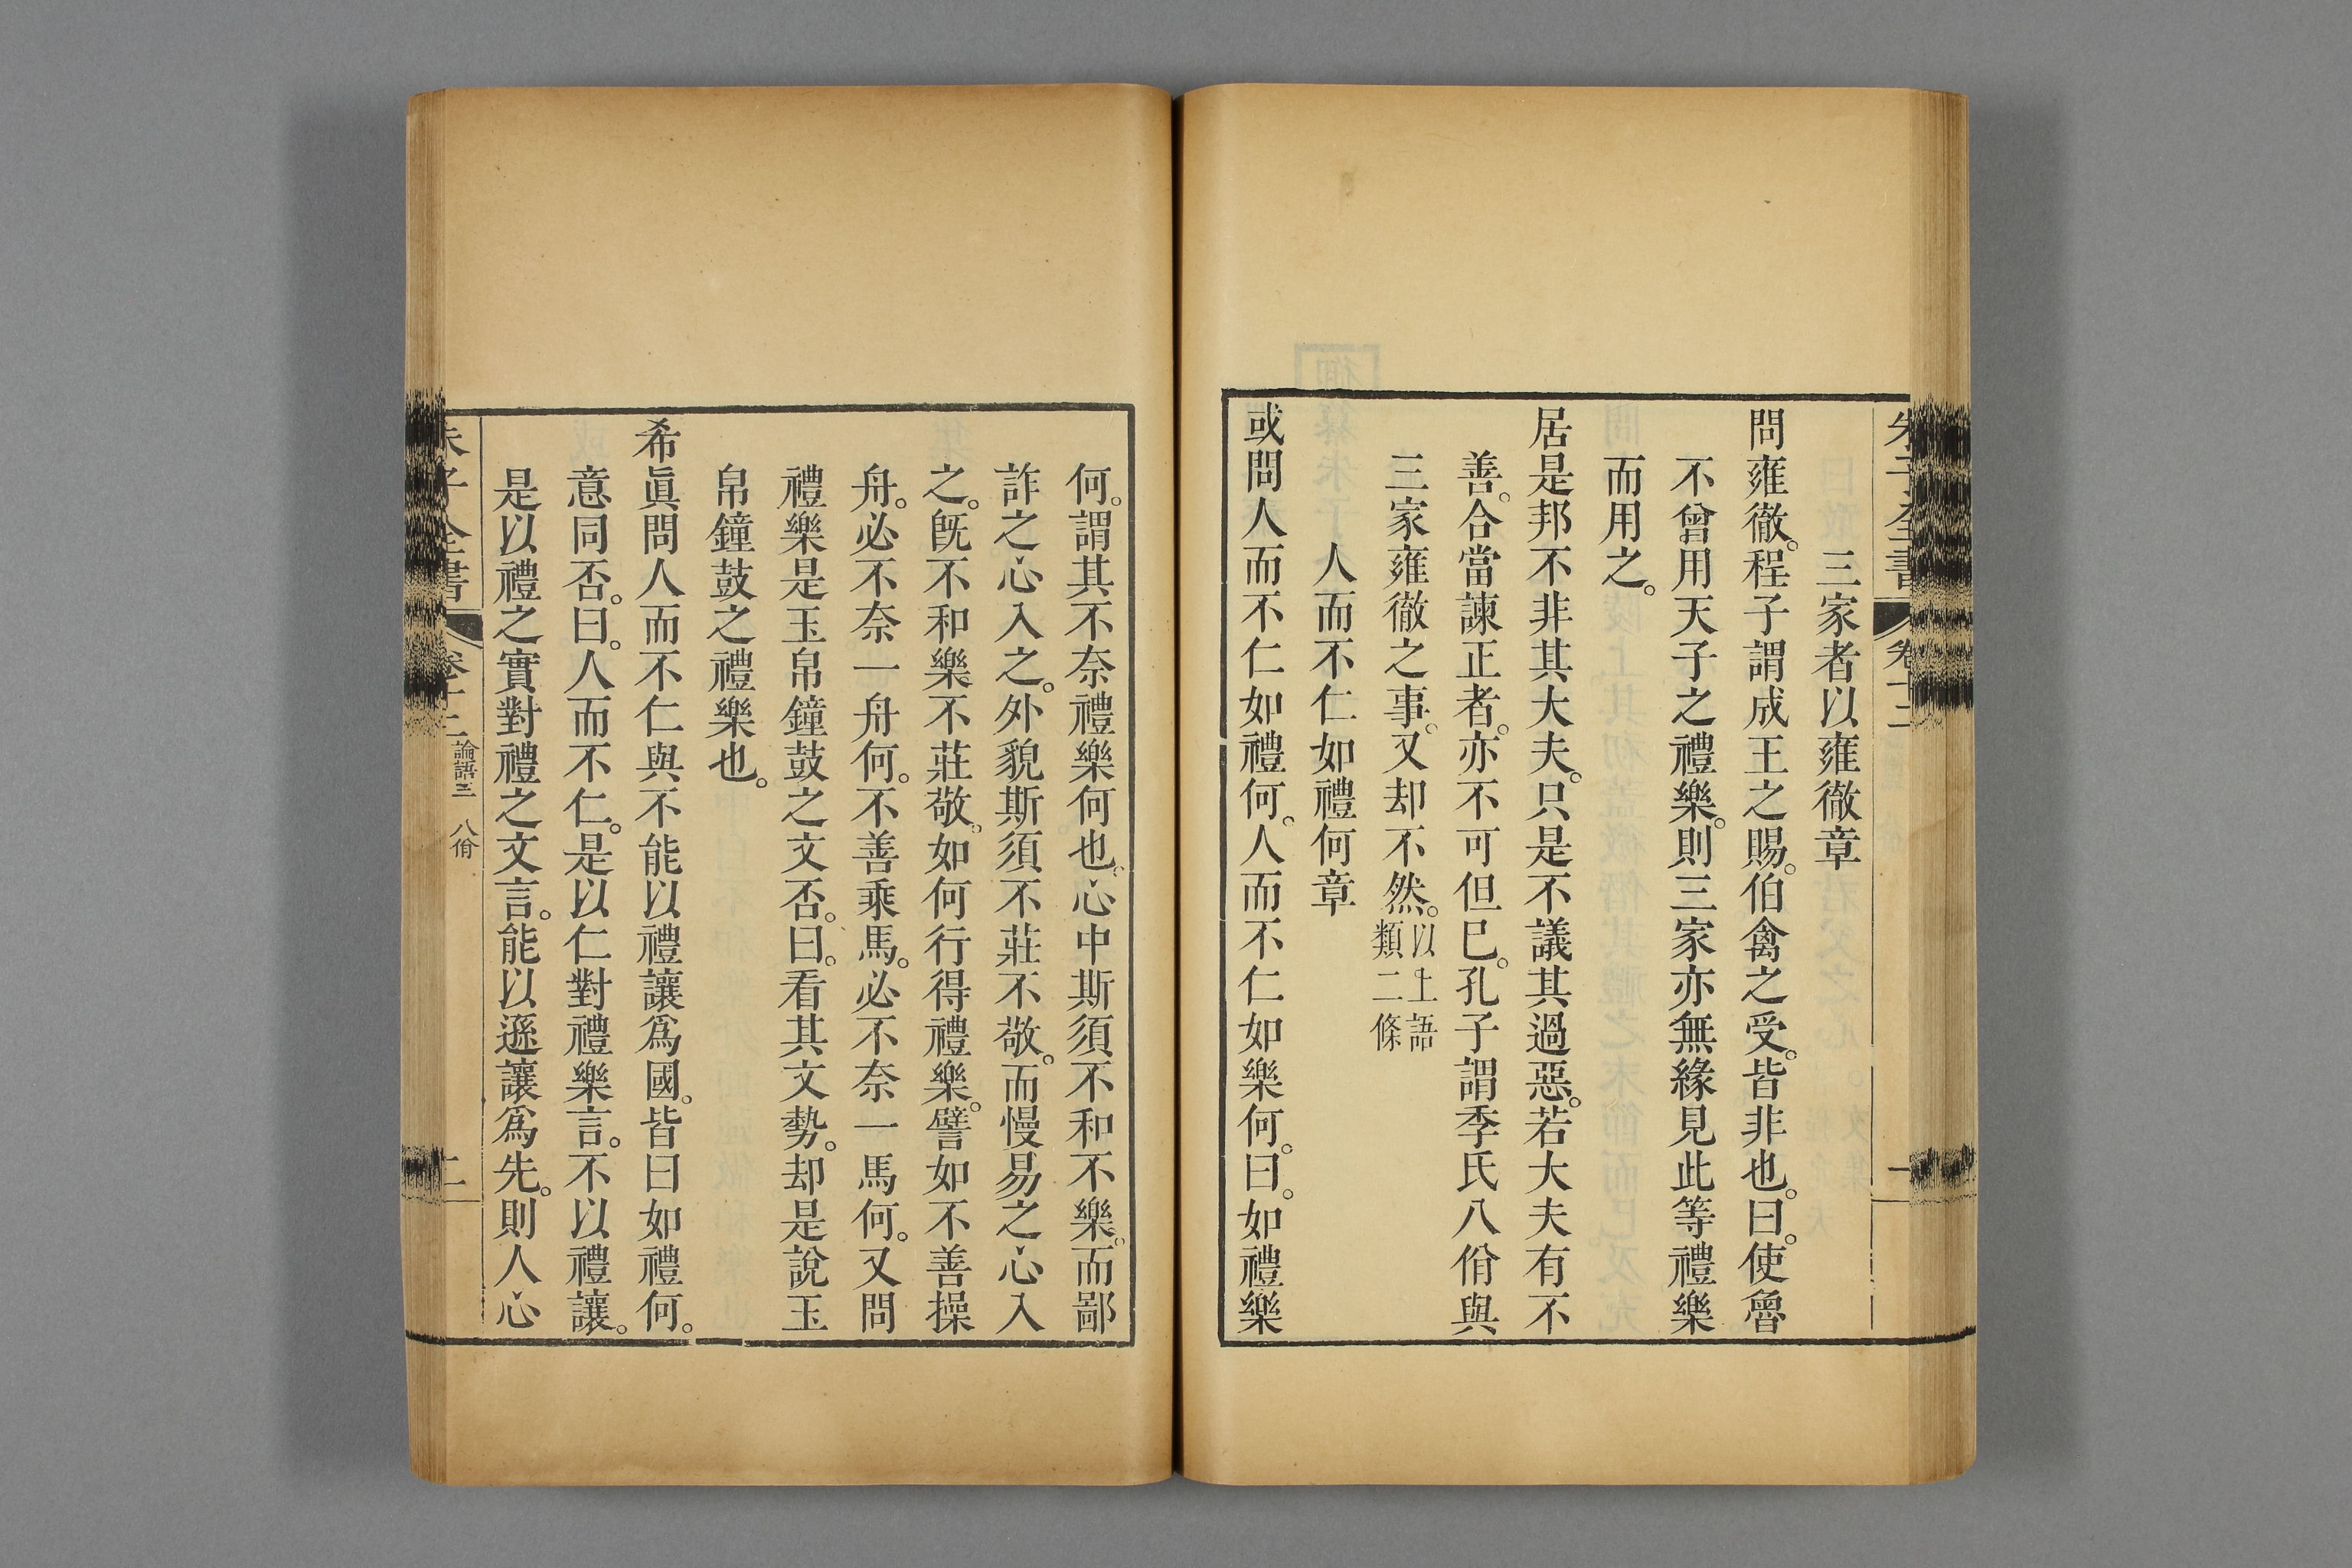 三家者以雍徹章
問雍徹。程子謂成王之賜。伯禽之受。皆非也。曰。使魯
不曾用天子之禮樂。則三家亦無緣見此等禮樂
而用之。
居是邦不非其大夫。只是不議其過惡。若大夫有不
善。合當諫正者。亦不可但已。孔子謂季氏八佾與
三家雍徹之事。又却不然。以上語類二條
人而不仁如禮何章
或問人而不仁如禮何。人而不仁如樂何。曰。如禮樂
何。謂其不奈禮樂何也。心中斯須不和不樂。而鄙
詐之心入之。外貌斯須不莊不敬。而慢易之心入
之。旣不和樂不莊敬。如何行得禮樂。譬如不善操
舟。必不奈一舟何。不善乘馬。必不奈一馬何。又問
禮樂是玉帛鐘鼓之文否。曰。看其文勢。却是說玉
帛鐘鼓之禮樂也。
希眞問人而不仁與不能以禮讓爲國。皆曰如禮何。
意同否。曰。人而不仁。是以仁對禮樂言。不以禮讓。
是以禮之實對禮之文言。能以遜讓爲先。則人心
朱子全書
卷十二
論語三 八佾
二